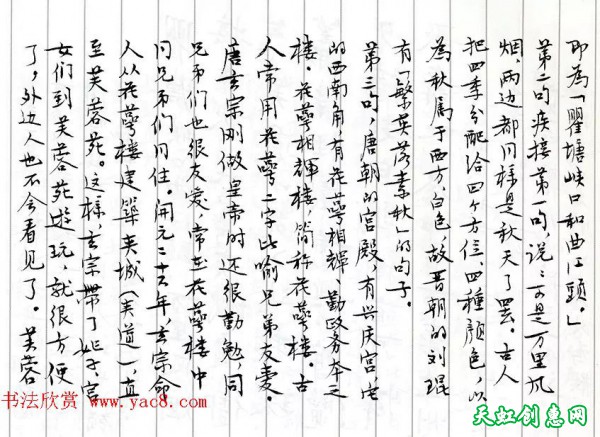 即為「瞿塘峽口和曲江頭。」
第二句疾接第一句，说：可是万里风
烟，两边都同样是秋天了罢。古人
把四季分配给四个方位、四種颜色，以
為秋属于西方、白色，故晋朝的刘琨
有「繁英落素秋」的句子。
第三句，唐朝的宫殿，有兴庆宫在
的西南角，有花萼相輝、勤政务本之
楼。花萼相輝楼，简称花萼楼。古
人常用花萼二字比喻兄弟友爱。
唐玄宗刚做皇帝时还很勤勉，同
兄弟们也很友爱，常在花萼楼中
同兄弟们同住。開元二十六年，玄宗命
人从花萼楼建築夹城（夹道），直
至芙蓉苑。这样，玄宗带了妃子、宫
女们到芙蓉苑遊玩，就很方便
了，外边人也不会看见了。芙蓉
书法欣赏 www.yac8.com
天虹创意网